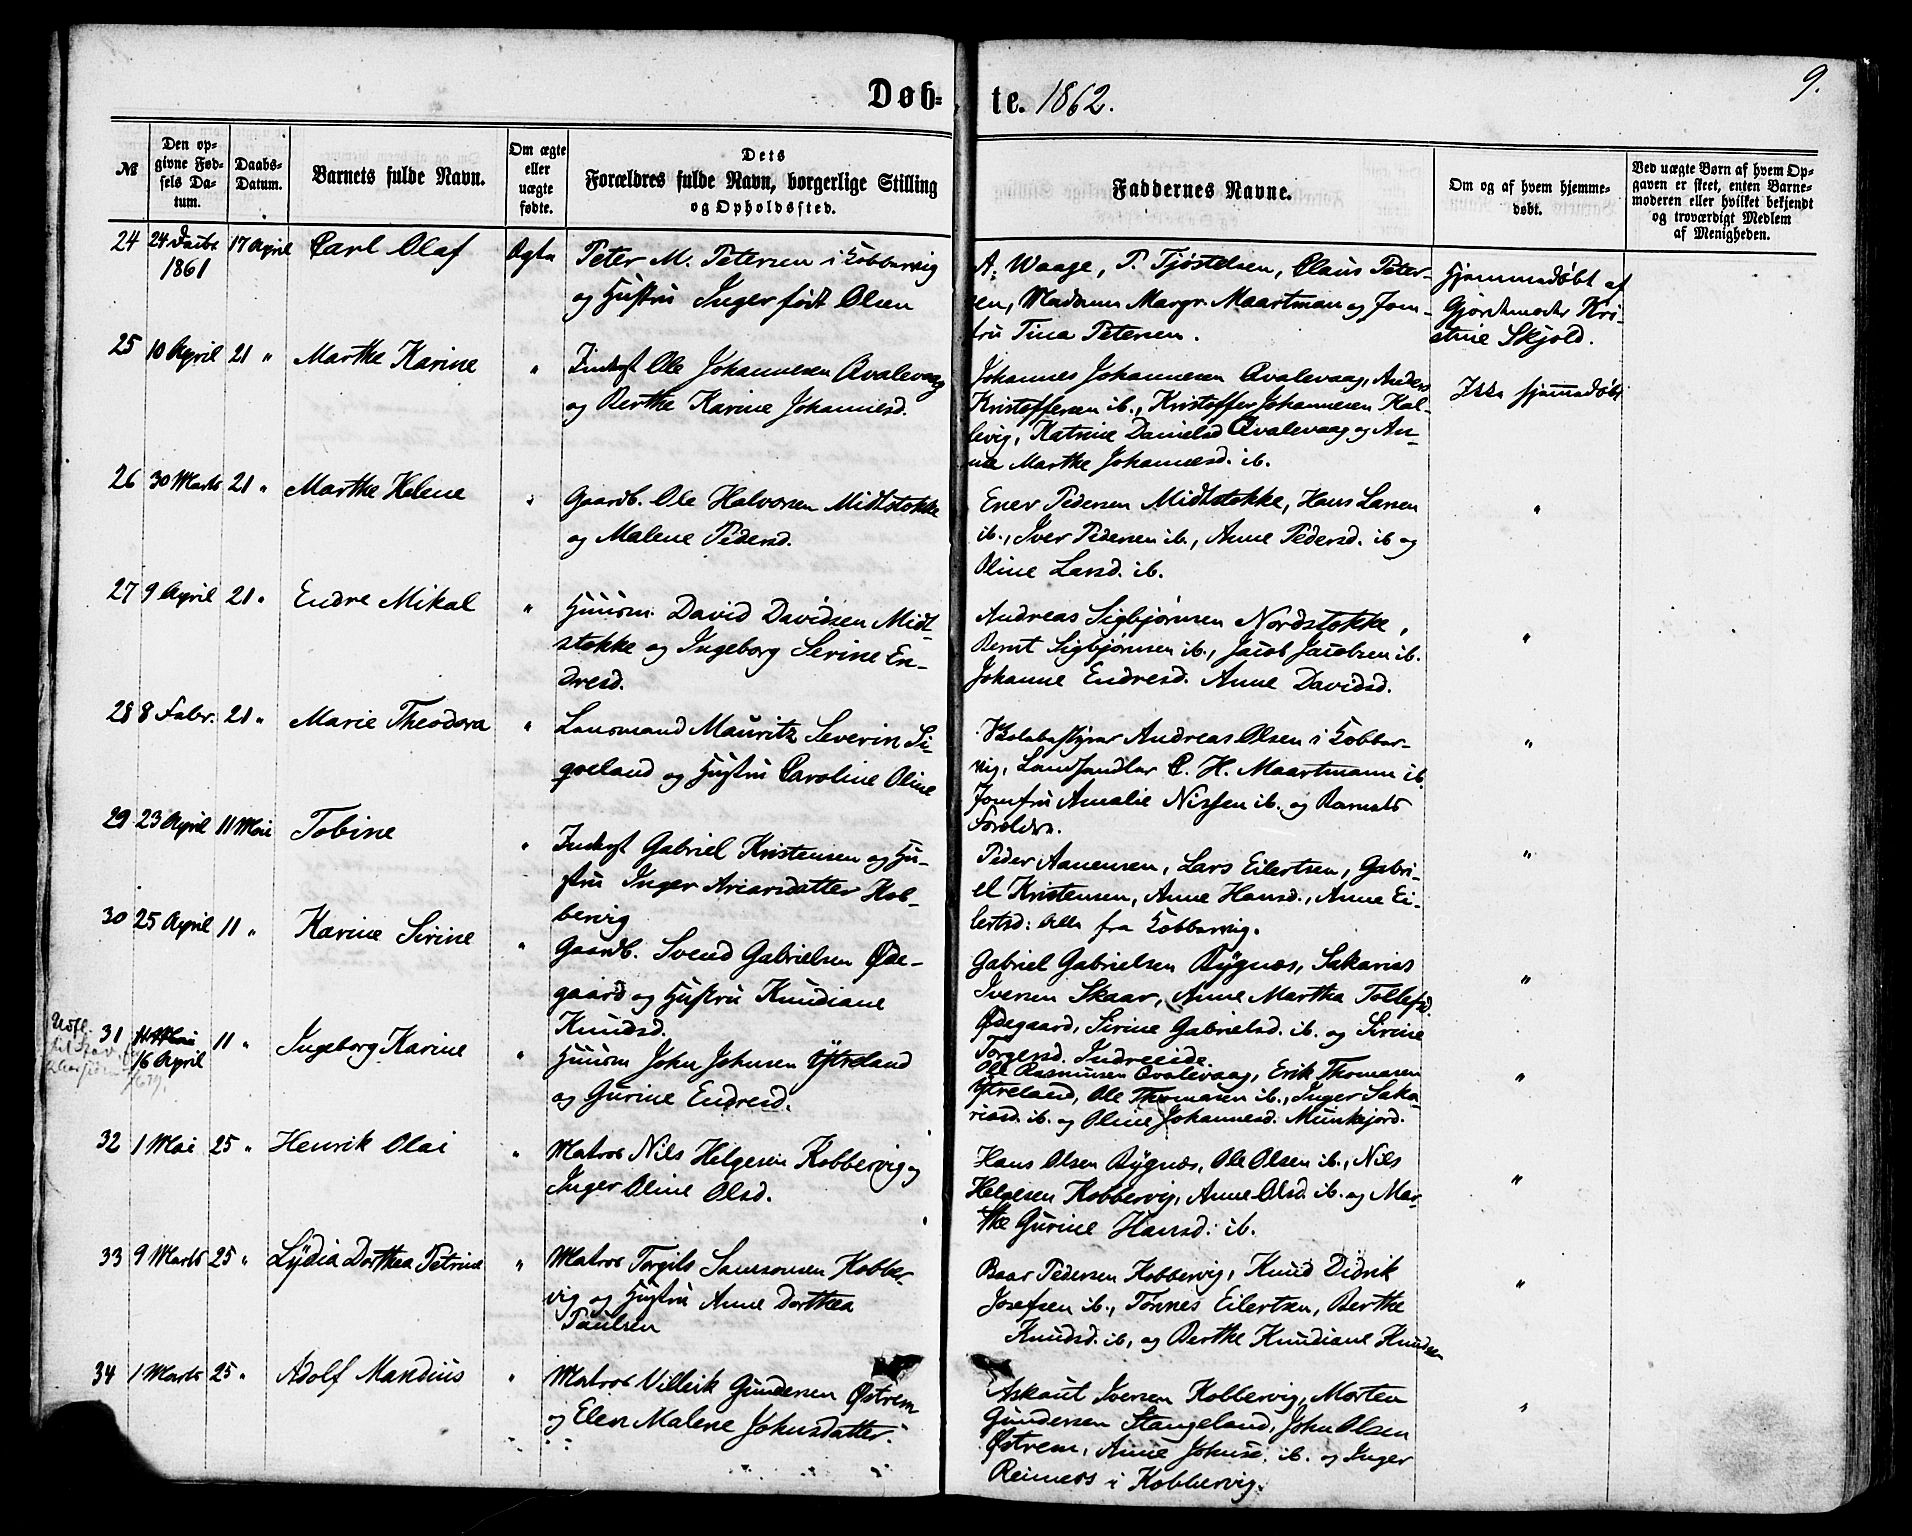 Døb-
te. 1862.
9.
№
Den op-
givne Fød-
sels Da-
tum.
Daabs-
Datum.
Barnets fulde Navn.
Om ægte
eller
uægte
fødte.
Dets
Forældres fulde Navn, borgerlige Stilling
og Opholdssted.
Faddernes Navne.
Om og af hvem hjemme-
døbt.
Ved uægte Børn af hvem Op-
gaven er skeet, enten Barne-
moderen eller hvilket bekjendt
og troværdigt Medlem
af Menigheden.
24
24
1861
17 April
Carl Olaf
Ægte
Peter M. Petersen i Kobbervig
og Hustru Inger født Olsen
A. Waage, P. Tjøstelsen, Claus Peter-
sen, Madam Margr. Maartman og Jom-
fru Tina Petersen.
Hjemmedøbt af
Gjordemoder Kri-
stine Skjold.
25
10 April
21 "
Marthe Karine
"
Inderst Ole Johannesen Qvalevaag
og Berthe Karine Johannesd.
Johannes Johannesen Qvalevaag, Anders
Kristoffersen ib., Kristoffer Johannesen Kal-
levig, Katrine Danielsd Qvalevaag og An-
na Marthe Johannesd. ib.
Ikke hjemmedøbt
26
30 Marts
21 "
Marthe Helene
"
Gaardb. Ole Halvorsen Midtstokke
og Malene Pedersd.
Ener Pedersen Midtstokke, Hans Larsen
ib., Iver Pedersen ib., Anne Pedersd. ib og
Oline Larsd. ib.
"
27
9 April
21 "
Endre Mikal
"
Huusm. David Davidsen Midt-
stokke og Ingeborg Serine En-
dresd.
Andreas Sigbjørnsen Nordstokke,
Bernt Sigbjørnsen ib., Jacob Jacobsen ib.
Johanne Endresd. Anne Davidsd.
"
28
8 Febr.
21 "
Marie Theodora
"
Lensmand Mauritz Severin Si-
qveland og Hustru Caroline Oline
Skolebestyrer Andreas Olsen i Kobber-
vig, Landhandler C. H. Maartmann ib.
Jomfru Amalie Nissen ib. og Barnets
Forældre.
"
29
23 April
11 Mai
Tobine
"
Inderst Gabriel Kristensen og Hu-
stru Inger Aviarsdatter Kob-
bervig
Peder Aanensen, Lars Eilertsen, Gabri-
el Kristensen, Anne Hansd., Anne Ei-
lertsd: Alle fra Kobbervig.
"
30
25 April
11 "
Karine Sirine
"
Gaardb. Svend Gabrielsen Øde-
gaard og Hustru Knudiane
Knudsd.
Gabriel Gabrielsen Bygnæs, Sakarias
Iversen Skaar, Anne Martha Tollefsd.
Ødegaard, Sirine Gabrielsd. ib. og Sirine
Torgersd. Indreeide
"
31
16 April
11 "
Ingeborg Karine
"
Huusm John Johnsen Ytreland
og Gurine Endresd.
Ole Rasmusen Qvalevaag, Erik Thomasen
Ytreland, Ole Thomasen ib., Inger Saka-
riasd. ib. og Oline Johannesd. Munkejord.
"
32
1 Mai
25 "
Henrik Olai
"
Matros Nils Helgesen Kobbervig og
Inger Oline Olsd.
Hans Olsen Bygnæs, Ole Olsen ib., Nils
Helgesen Kobbervig, Anne Olsd. ib. og Mar-
the Gurine Hansd: ib.
"
33
9 Marts
25 "
Lydia Dorthea Petrine
"
Matros Torgils Samsonsen Kobber-
vig og Hustru Anne Dorthea
Paulsen
Baar Pedersen Kobbervig, Knud Didrik
Josefsen ib., Tønnes Eilertsen, Berthe
Knudsd. ib, og Berthe Knudiane Knudsen
"
34
1 Marts
25 "
Adolf Mandius
"
Matros Villeik Gundersen Østrem
og Elen Malene Johnsdatter.
Askaut Iversen Kobbervig, Morten
Gundersen Stangeland, John Olsen
Østrem, Anne Johnsd. ib. og Inger
Reimers i Kobbervig.
"